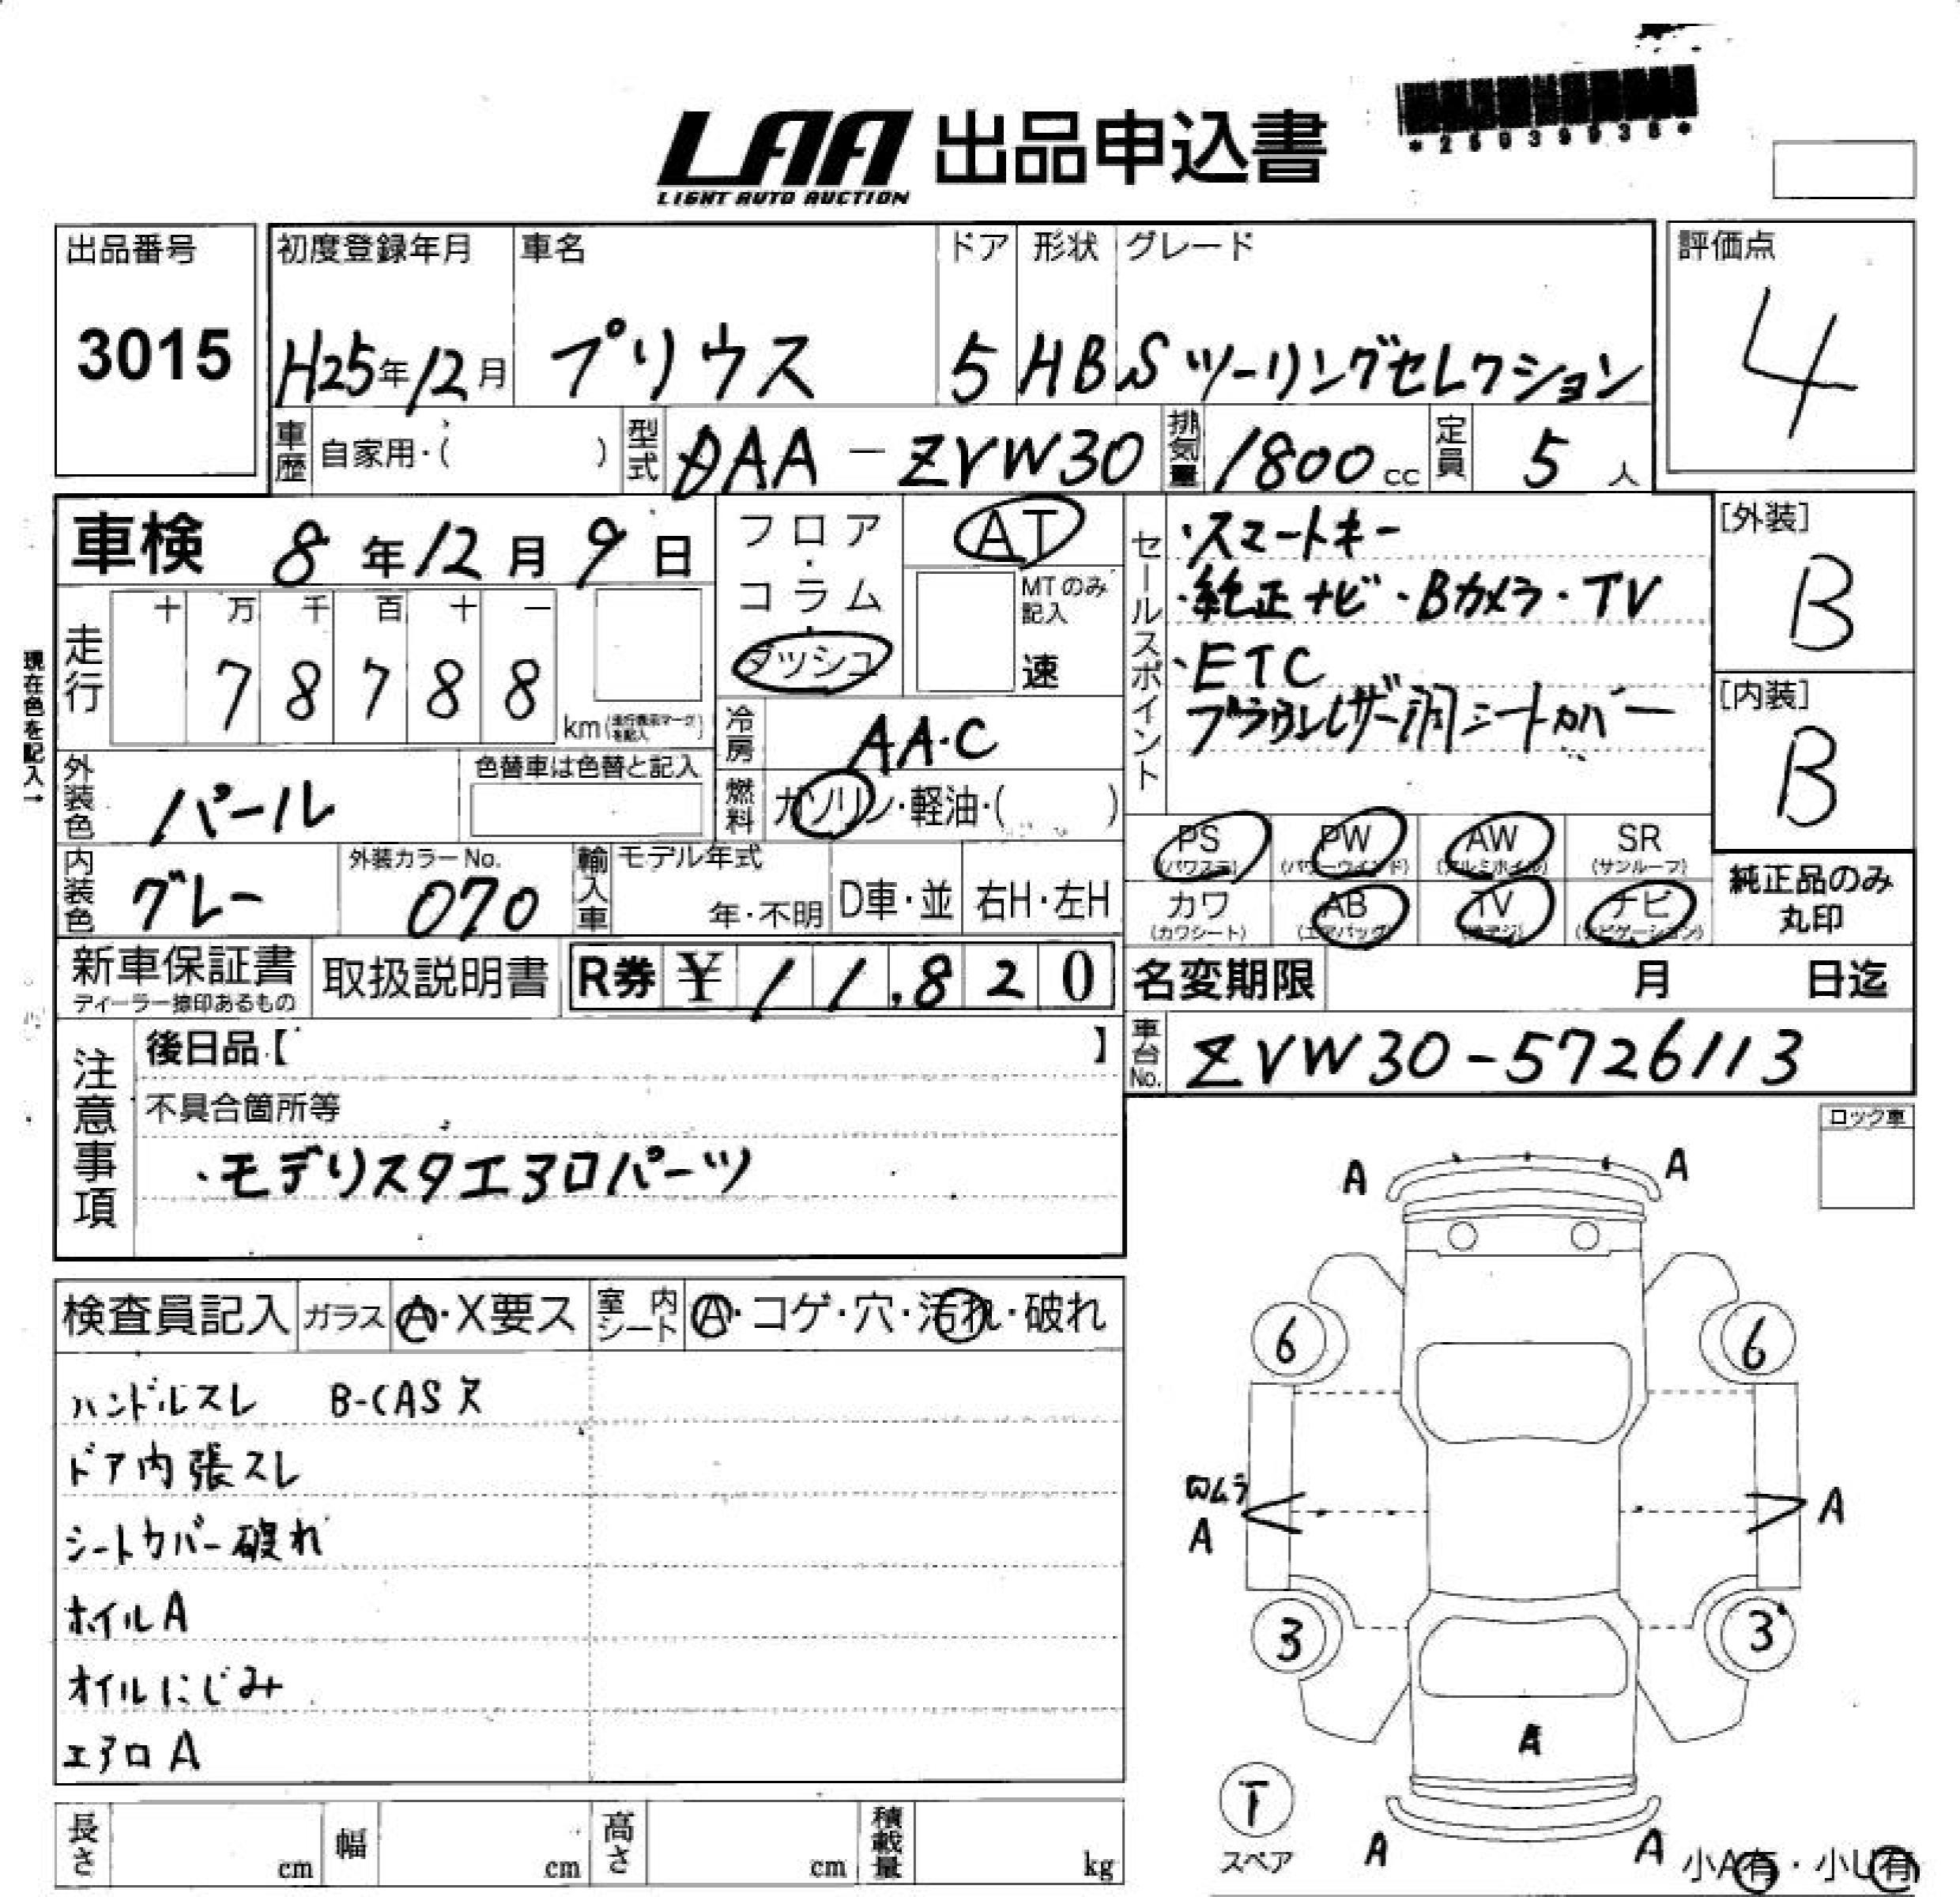 LAA 出品申込書
LIGHT AUTO AUCTION
出品番号
3015
初度登録年月
H25年12月
車名
プリウス
ドア
5
形状
HB
グレード
Sツーリングセレクション
評価点
4
車歴 自家用・( )
型式 DAA-ZVW30
排気量 1800cc
定員 5人
車検 8年12月9日
フロア・コラム・ダッシュ
AT
MTのみ記入
速
セールスポイント
・スマートキー
・純正ナビ・Bカメラ・TV
・ETC
ブラウンレザー調シートカバー
[外装]
B
[内装]
B
現在色を記入→
走行
十万千百十一
78788
km(走行機表示マーク)を記入
冷房 AA・C
燃料 ガソリン・軽油・( )
外装色 パール
色替車は色替と記入
内装色 グレー
外装カラーNo.
070
輸入車
モデル年式
年・不明
D車・並
右H・左H
PS (パワステ)
PW (パワーウインド)
AW (アルミホイル)
SR (サンルーフ)
カワ (カワシート)
AB (エアバッグ)
TV (地デジ)
ナビ (ナビゲーション)
純正品のみ
丸印
新車保証書
ディーラー捺印あるもの
取扱説明書
R券 ¥ 11,820
名変期限 月 日迄
車台No. ZVW30-5726113
注意事項
後日品【 】
不具合箇所等
・モデリスタエアロパーツ
ロック車
検査員記入
ガラス A・X要ス
室内シート A・コゲ・穴・汚れ・破れ
ハンドルスレ B-CAS欠
ドア内張スレ
シートカバー破れ
ホイルA
オイルにじみ
エアロA
A
A
6
6
ムラ
A
A
3
3
A
T
スペア
A
A
小A有・小U有
長さ cm
幅 cm
高さ cm
積載量 kg